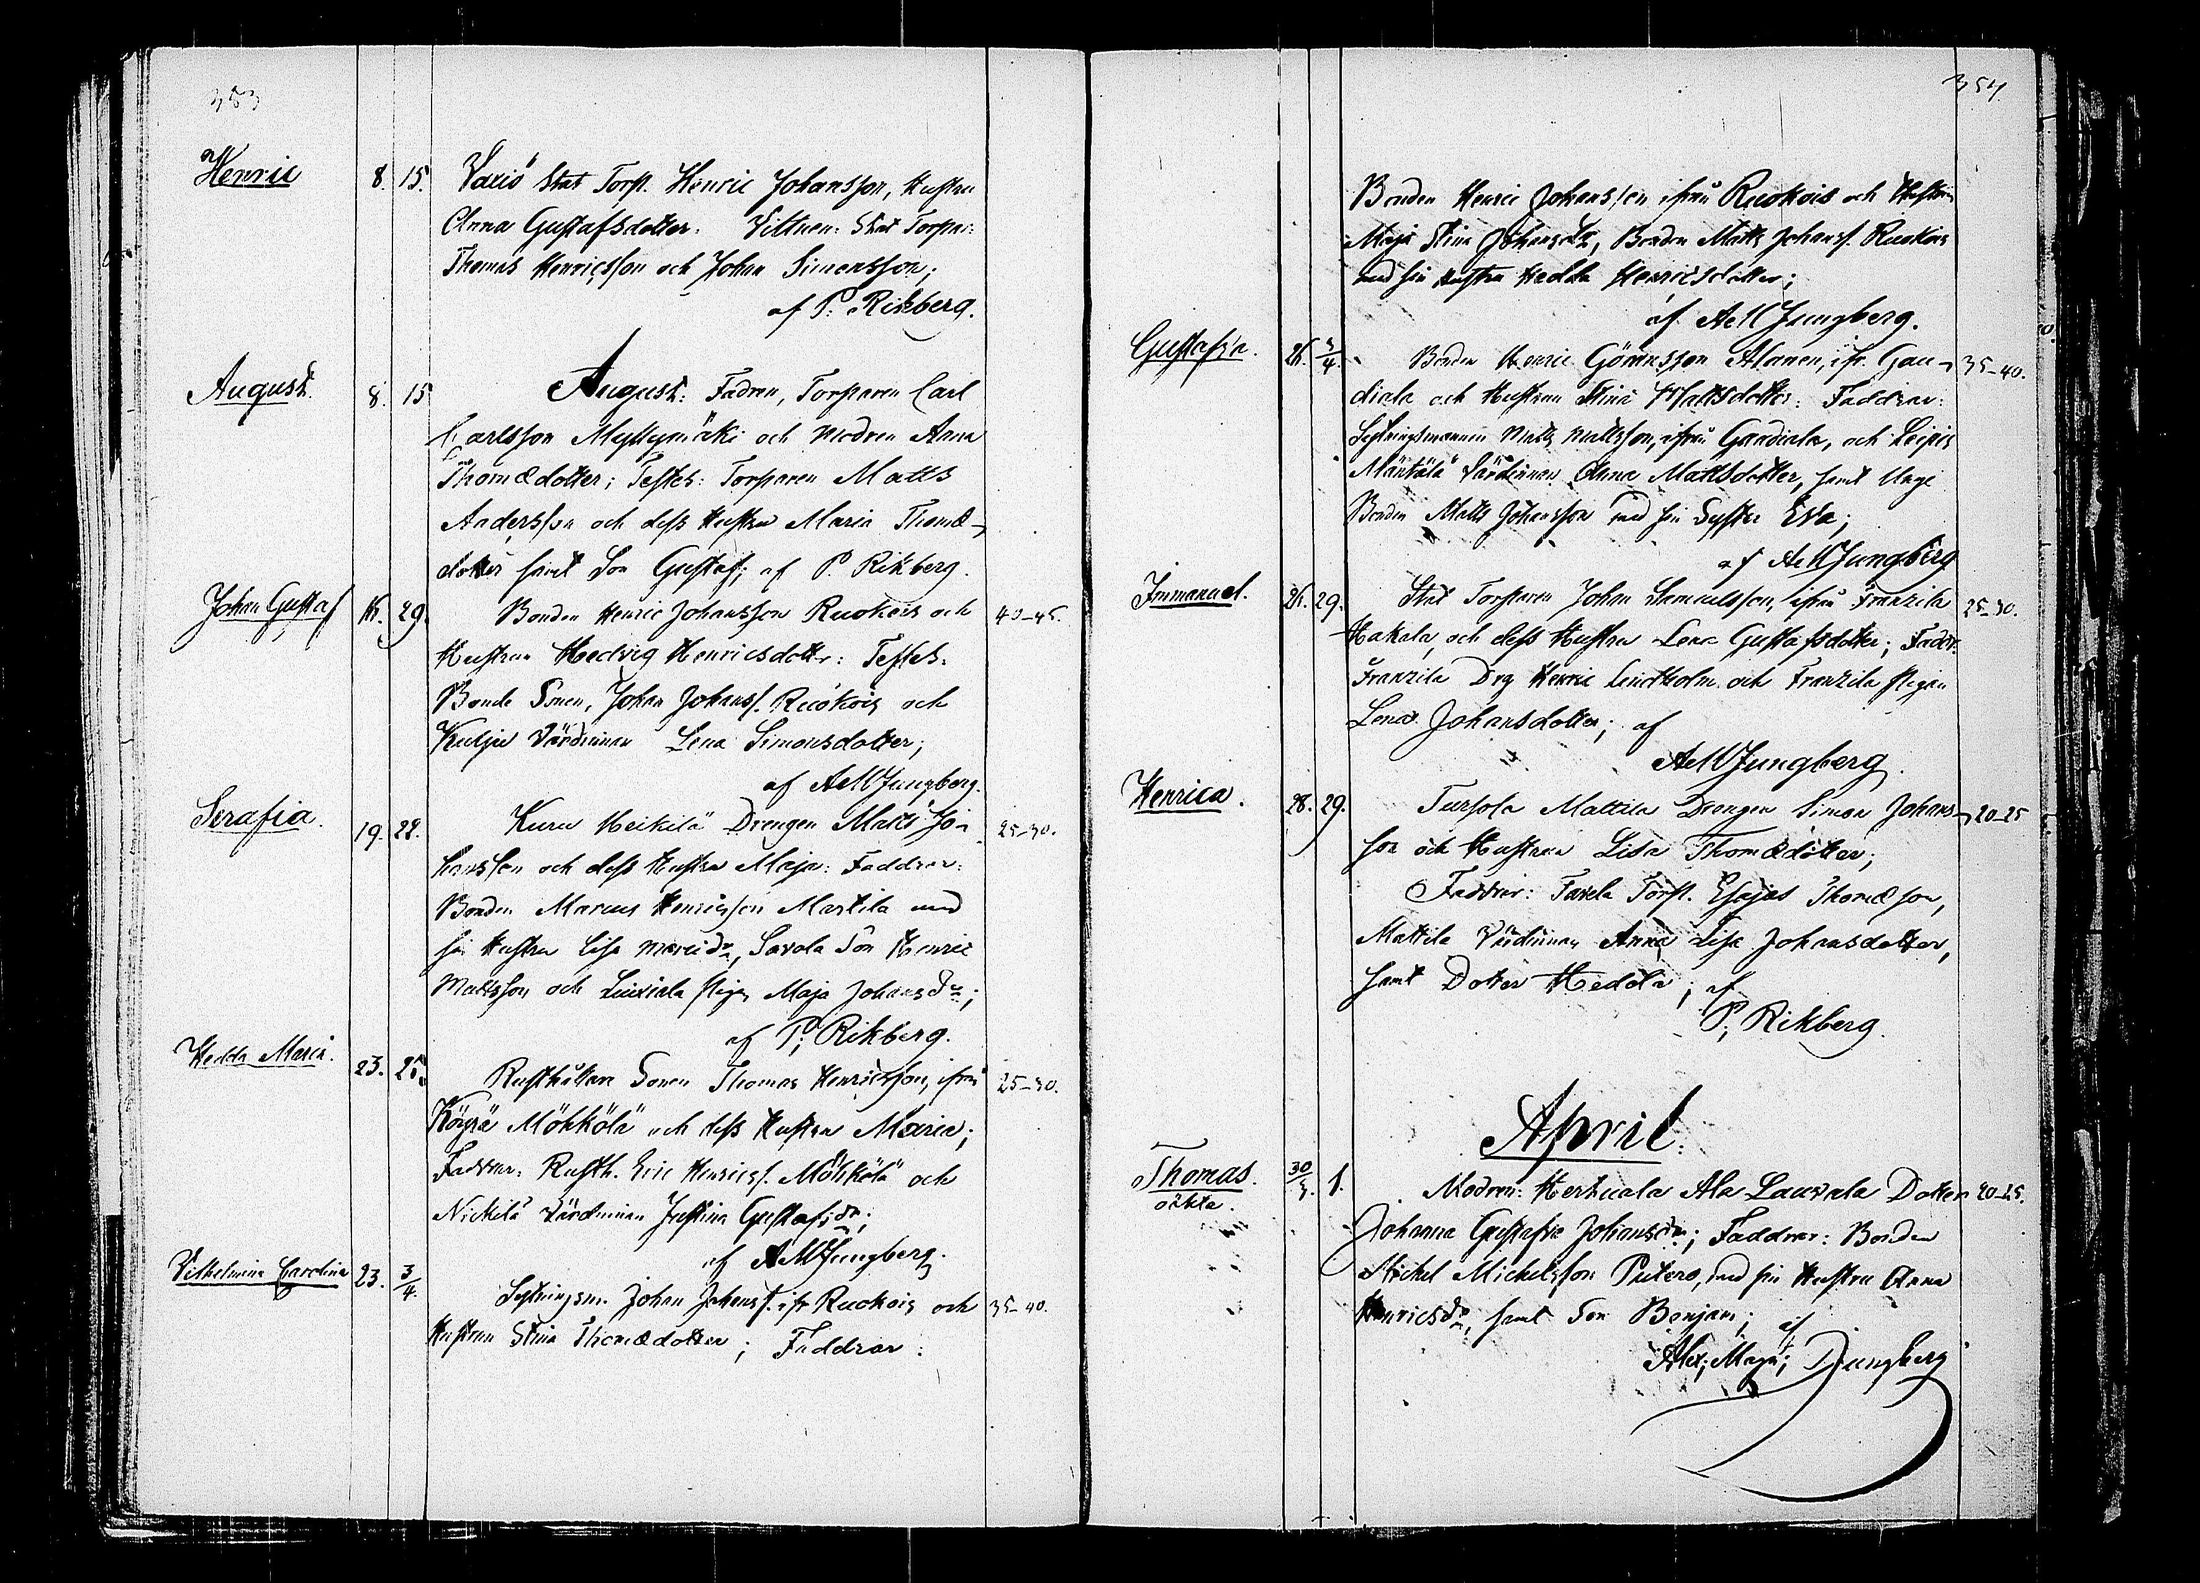 353
Henric 8. 15. Vario Stat Torp. Henric Johansson, Hustru
Anna Gustafsdotter. Vittnen: Stat Torpar:
Thomas Henricsson och Johan Simonsson;
af P. Rikberg.
August. 8. 15 August: Fadren, Torparen Carl
Carlsson Myllymäki och Modren Anna
Thomædotter; Testes: Torparen Matts
Andersson och dess Hustru Maria Thomæ-
dotter samt Son Gustaf; af P. Rikberg.
Johan Gustaf 16. 29. Bonden Henric Johansson Ruokois och 40-45.
Hustrun Hedvig Henricsdotter: Testes.
Bonde Sonen, Johan Johanss. Ruokois och
Värdinnan Lena Simonsdotter;
af AMDjungberg.
Serafia. 19. 22. Kuru Heikilä Drengen Matts Jo- 25-30.
hansson och dess Hustru Maja: Faddrar:
Bonden Marcus Henricsson Martila med
sin Hustru Lisa, Savola Son Henric
Mattsson och Pigan Maja Johansdr;
af P. Rikberg.
Hedda Maria. 23. 25. Rusthållare Sonen Thomas Henricsson, ifrån 25-30.
Köyrä Möhkölä och dess Hustru Maria;
Faddrar: Rusth. Eric Henricss. Möhkölä och
Nickilä Värdinnan Justina Gustafsdr;
af AMDjungberg.
Vilhelmina Carolina 23. 3/4. Sytningsm. Johan Johanss. ifr Ruokois och 35-40.
Hustrun Stina Thomædotter; Faddrar:
354
Bonden Henric Johansson ifrån Ruokois och Hustrun
Maja Stina Johansdr, Bonden Matts Johanss. Ruokois
med sin Hustru Hedda Henricsdotter;
af AMDjungberg.
Gustafva. 26. 3/4. Bonden Henric Göransson Alanen, ifr. Gau- 35-40.
diala och Hustrun Stina Mattsdotter: Faddrar:
Sytningsmannen Matts Mattsson, ifrån Gaudiala, och
Mäntälä Värdinnan Anna Mattsdotter, samt Unge
Bonden Matts Johansson med sin Syster Eva;
af AMDjungberg
Immanuel. 26. 29. Stat Torparen Johan Samuelsson, ifrån Franzila 25-30.
Hakala, och dess Hustru Lena Gustafsdotter; Faddr.
Franzila Drg Henric Lindholm och Franzila Pigan
Lena Johansdotter; af
AMDjungberg.
Henrica. 28. 29. Tursola Mattila Drengen Simon Johans- 20-25
son och Hustrun Lisa Thomædotter;
Faddrar: Torp. Esajas Thomæson,
Mattila Värdinnan Anna Lisa Johansdotter,
samt Dotter Hedda; af
P. Rikberg.
April.
Thomas. 30/3. 1. Modren: Herkuala Ala Lauvala Dotter 20-25.
oäkta. Johanna Gustafva Johansdr; Faddrar: Bonden
Mickel Mickelsson Putero, med sin Hustru Anna
Henricsdr, samt Son Benjam; af
Alex; Magn; Djungberg